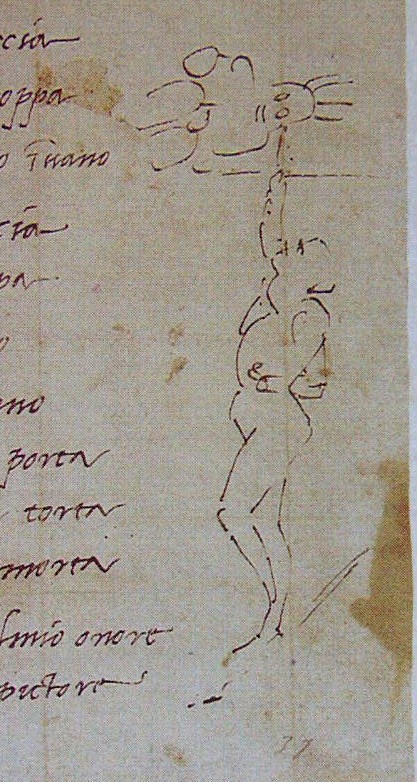 ccia
oppa
o ī uano
ccia
pa
o
ano
porta
torta
morta
l mio onore
pictore